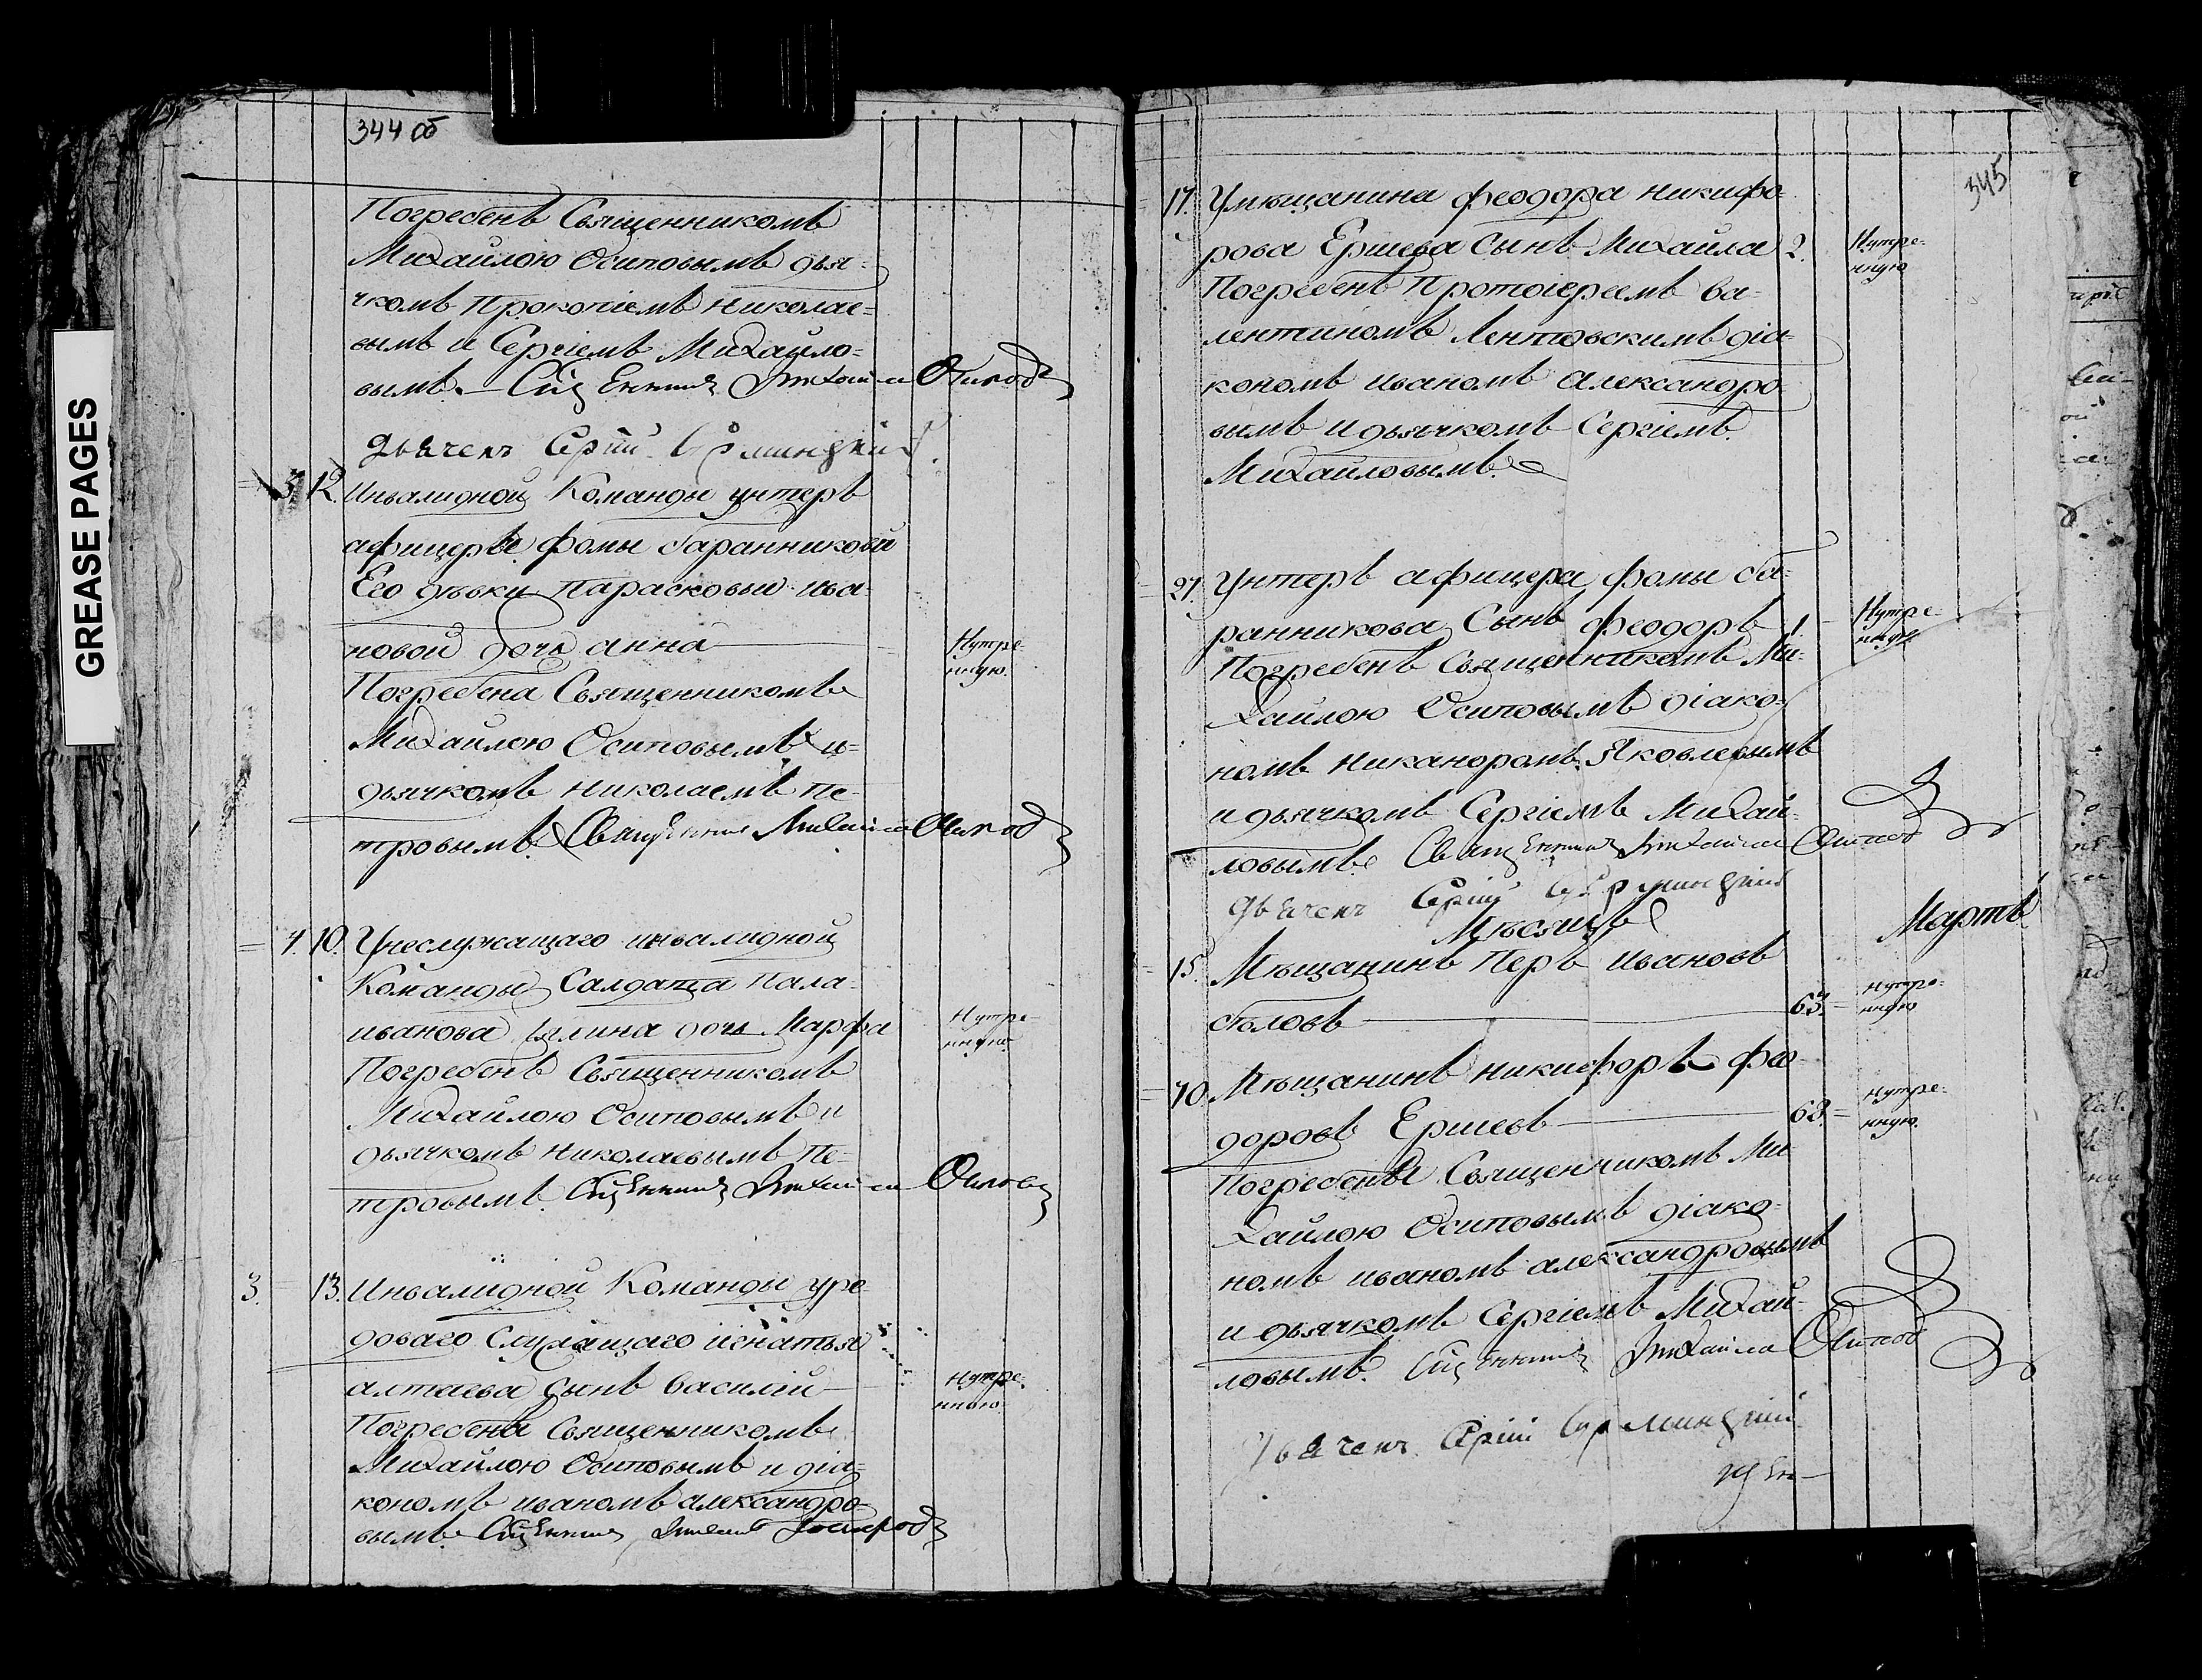 GREASE PAGES
344 об
Погребенъ Священникомъ
Михайлою Осиповымъ дья-
чкомъ Прокопіемъ Николае-
вымъ и Сергіемъ Михайло-
вымъ. — Сщенникъ Михаила Осиповъ
дьячекъ Сергій
3 12. Инвалидной Команды унтеръ
афицера Фомы баранникова
Его дѣвки Парасковьи ива-
новой дочь анна — Нутре-
нную.
Погребена Священникомъ
Михайлою Осиповымъ и
дьячкомъ Николаемъ Пе-
тровымъ. Священникъ Михаила Осиповъ
4. 10. Унеслужащаго инвалидной
Команды Салдата
иванова дочь Марфа Нутре-
нную.
Погребенъ Священникомъ
Михайлою Осиповымъ и
дьячкомъ Николаевымъ Пе-
тровымъ. Сщенникъ Михаила Осиповъ
3. 13. Инвалидной Команды уре
доваго Служащаго игнатья
алтаева сынъ василій — Нутре-
нною.
Погребены Священникомъ
Михайлою Осиповымъ и діа-
кономъ иваномъ александро-
вымъ. Сщенникъ
345
17. Умѣщанина Феодора Никифо-
рова Ершева Сынъ Михайла 2. Нутре-
нную
Погребенъ Протоіереемъ ва-
лентиномъ Лентовскимъ діа-
кономъ иваномъ александро-
вымъ и дьячкомъ Сергіемъ
Михайловымъ.
27. Унтеръ афицера Фомы ба-
ранникова Сынъ Феодоръ 1. Нутре-
нную
Погребенъ Священникомъ Ми-
хайлою Осиповымъ діако-
номъ Никаноромъ Яковлевымъ
и дьячкомъ Сергіемъ Михай-
ловымъ. Священникъ Михаила Осиповъ
дьячекъ Сергій
Мѣсяцъ Мартъ
15. Мѣщанинъ Перъ ивановъ
Столовъ — 63. Нутре-
нную
70. Мѣщанинъ Никифоръ Фео-
доровъ Ершевъ — 68. Нутре-
нную.
Погребены Священникомъ Ми-
хайлою Осиповымъ діако-
номъ иваномъ александровымъ
и дьячкомъ Сергіемъ Михай-
ловымъ. Сщенникъ Михаила Осиповъ
дьячекъ Сергій